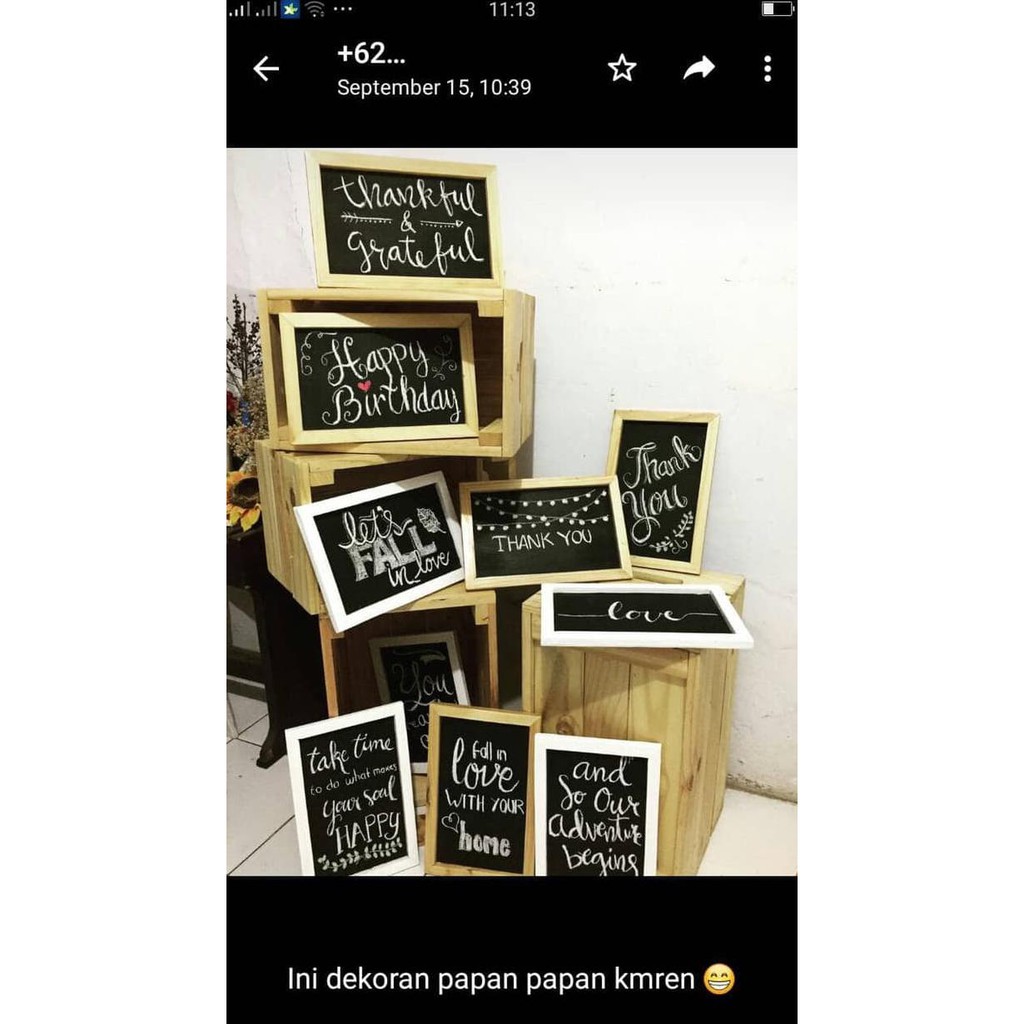 11:13
+62...
September 15, 10:39
thankful
&
grateful
Happy
Birthday
let's
FALL
in love
THANK YOU
Thank
You
love
You
take time
to do what makes
your soul
HAPPY
fall in
love
WITH YOUR
home
and
So Our
Adventure
begins
Ini dekoran papan papan kmren 😁